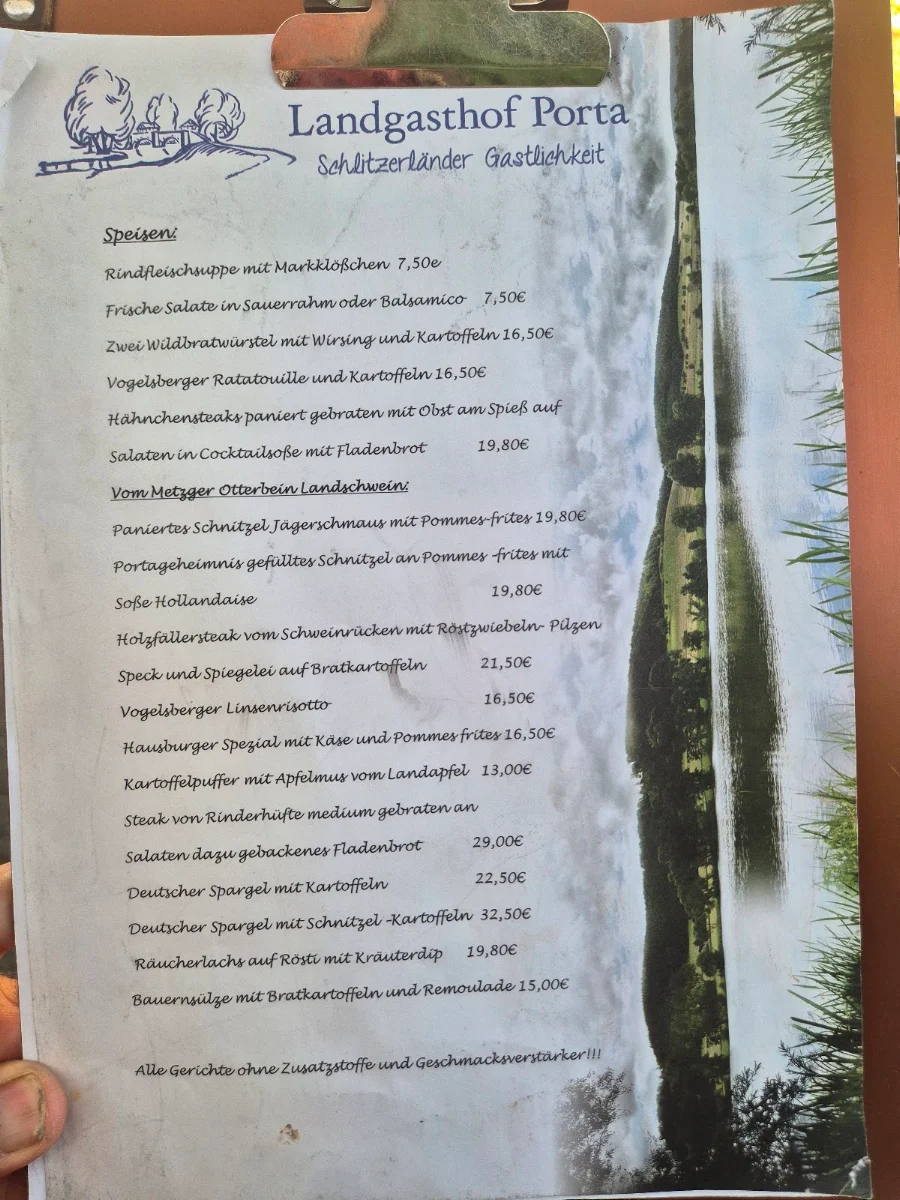 Landgasthof Porta
Schlitzerländer Gastlichkeit
Speisen:
Rindfleischsuppe mit Markklößchen 7,50e
Frische Salate in Sauerrahm oder Balsamico 7,50€
Zwei Wildbratwürstel mit Wirsing und Kartoffeln 16,50€
Vogelsberger Ratatouille und Kartoffeln 16,50€
Hähnchensteaks paniert gebraten mit Obst am Spieß auf
Salaten in Cocktailsoße mit Fladenbrot 19,80€
Vom Metzger Otterbein Landschwein:
Paniertes Schnitzel Jägerschmaus mit Pommes-frites 19,80€
Portageheimnis gefülltes Schnitzel an Pommes -frites mit
Soße Hollandaise 19,80€
Holzfällersteak vom Schweinrücken mit Röstzwiebeln- Pilzen
Speck und Spiegelei auf Bratkartoffeln 21,50€
Vogelsberger Linsenrisotto 16,50€
Hausburger Spezial mit Käse und Pommes frites 16,50€
Kartoffelpuffer mit Apfelmus vom Landapfel 13,00€
Steak von Rinderhüfte medium gebraten an
Salaten dazu gebackenes Fladenbrot 29,00€
Deutscher Spargel mit Kartoffeln 22,50€
Deutscher Spargel mit Schnitzel -Kartoffeln 32,50€
Räucherlachs auf Rösti mit Kräuterdip 19,80€
Bauernsülze mit Bratkartoffeln und Remoulade 15,00€
Alle Gerichte ohne Zusatzstoffe und Geschmacksverstärker!!!